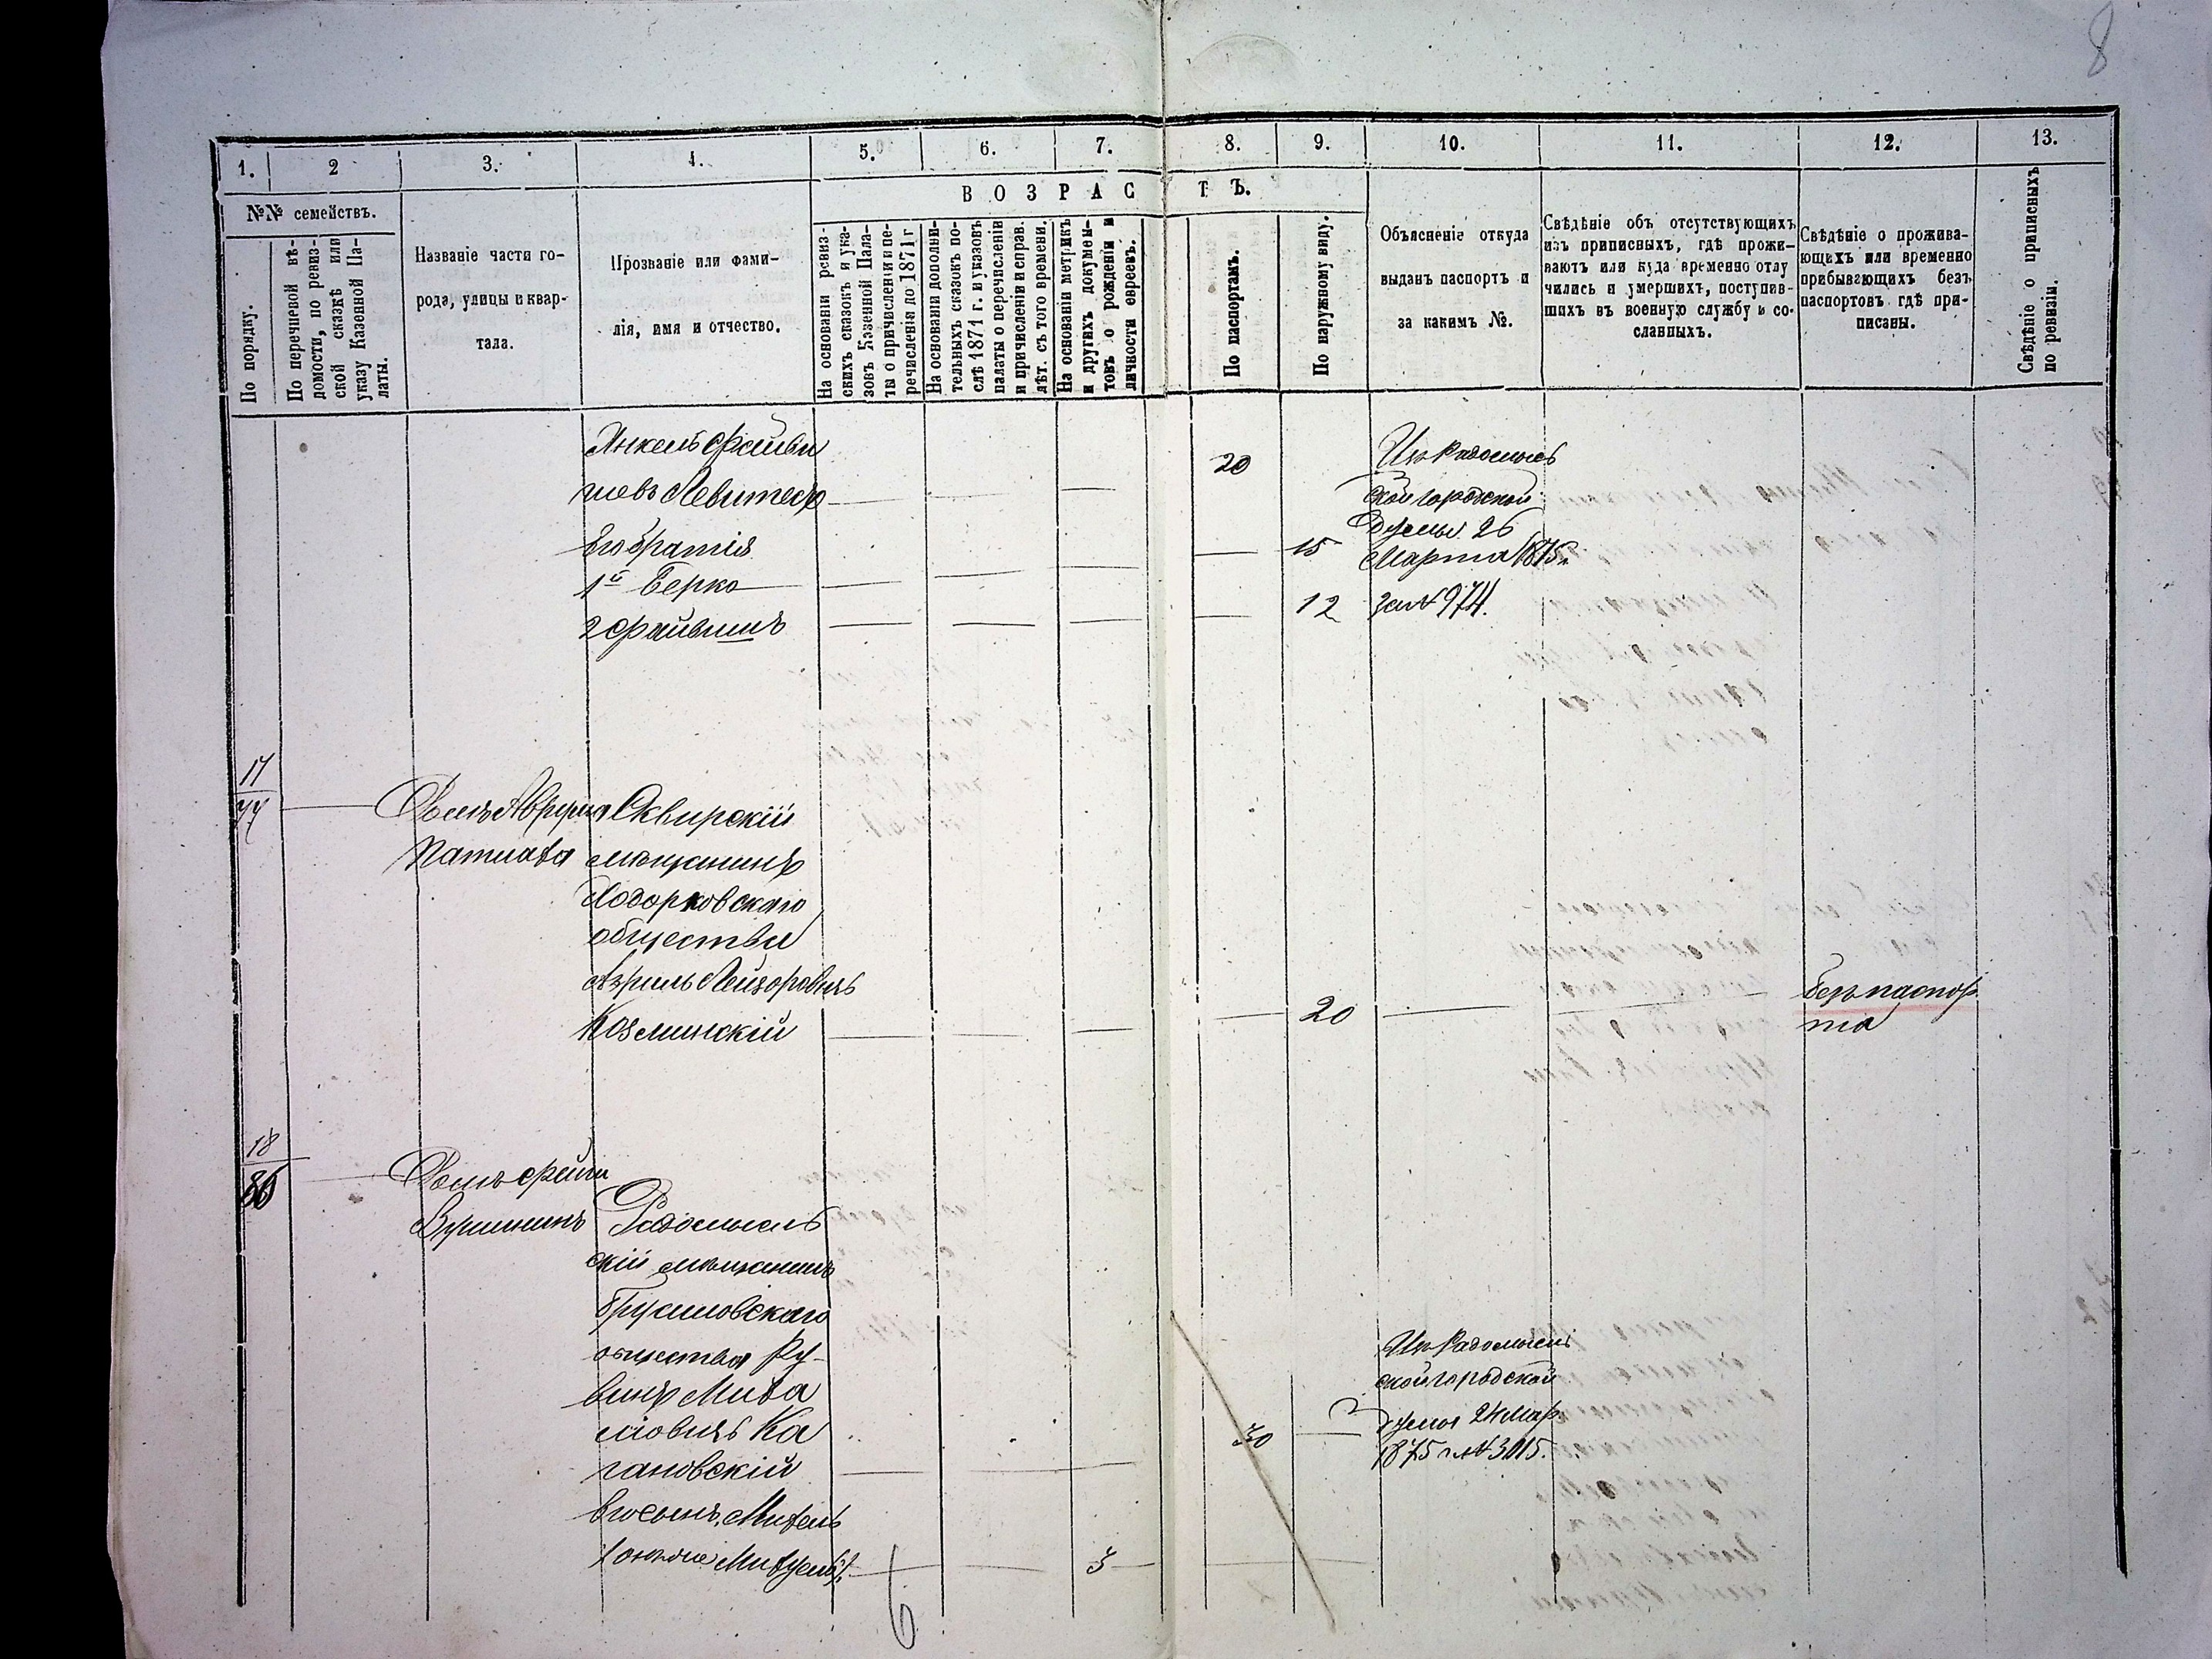 8
1. 2 3. 4. 5. 6. 7. 8. 9. 10. 11. 12. 13.
№№ семействъ.
ВОЗРАСТЪ.
По порядку.
По перечневой вѣ-
домости, по ревиз-
ской сказкѣ или
указу Казенной Па-
латы.
Названіе части го-
рода, улицы и квар-
тала.
Прозваніе или фами-
лія, имя и отчество.
На основаніи ревиз-
скихъ сказокъ и ука-
зовъ Казенной Пала-
ты о причисленіи и пе-
речисленія до 1871 г
На основаніи дополни-
тельныхъ сказокъ по-
слѣ 1871 г. и указовъ
палаты о перечисленіи
и причисленіи и справ.
лѣт. съ того времени.
На основаніи метрикъ
и другихъ докумен-
товъ о рожденіи и
личности евреевъ.
По паспортамъ.
По наружному виду.
Объясненіе откуда
выданъ паспортъ и
за какимъ №.
Свѣдѣніе объ отсутствующихъ
изъ приписныхъ, гдѣ прожи-
ваютъ или куда временно отлу
чились и умершихъ, поступив-
шихъ въ военную службу и со-
сланныхъ.
Свѣдѣніе о прожива-
ющихъ или временно
прибывающихъ безъ
паспортовъ гдѣ при-
писаны.
Свѣдѣніе о приписныхъ
по ревизіи.
Янкель Файви
шевъ Левитесъ
20
Изъ Радомысль
ской городской
Думы 26
Марта 1875 г.
за № 974.
Его братія
1й Берко
15
2 Файвишъ
12
17
77
Домъ Аврума
Сквирскій
мѣщанинъ
Ходорковскаго
общества
Азриль Лейзоровичъ
Козминскій
20
безъ паспор
та
18
86
Домъ
Радомысль
скій мѣщанинъ
Брусиловскаго
общества Ру-
винъ Миха
ловичъ Ка
гановскій
30
Изъ Радомысль
ской городской
думы 24 Мар
1875 г. № 3015.
Его сынъ Михель
3
6